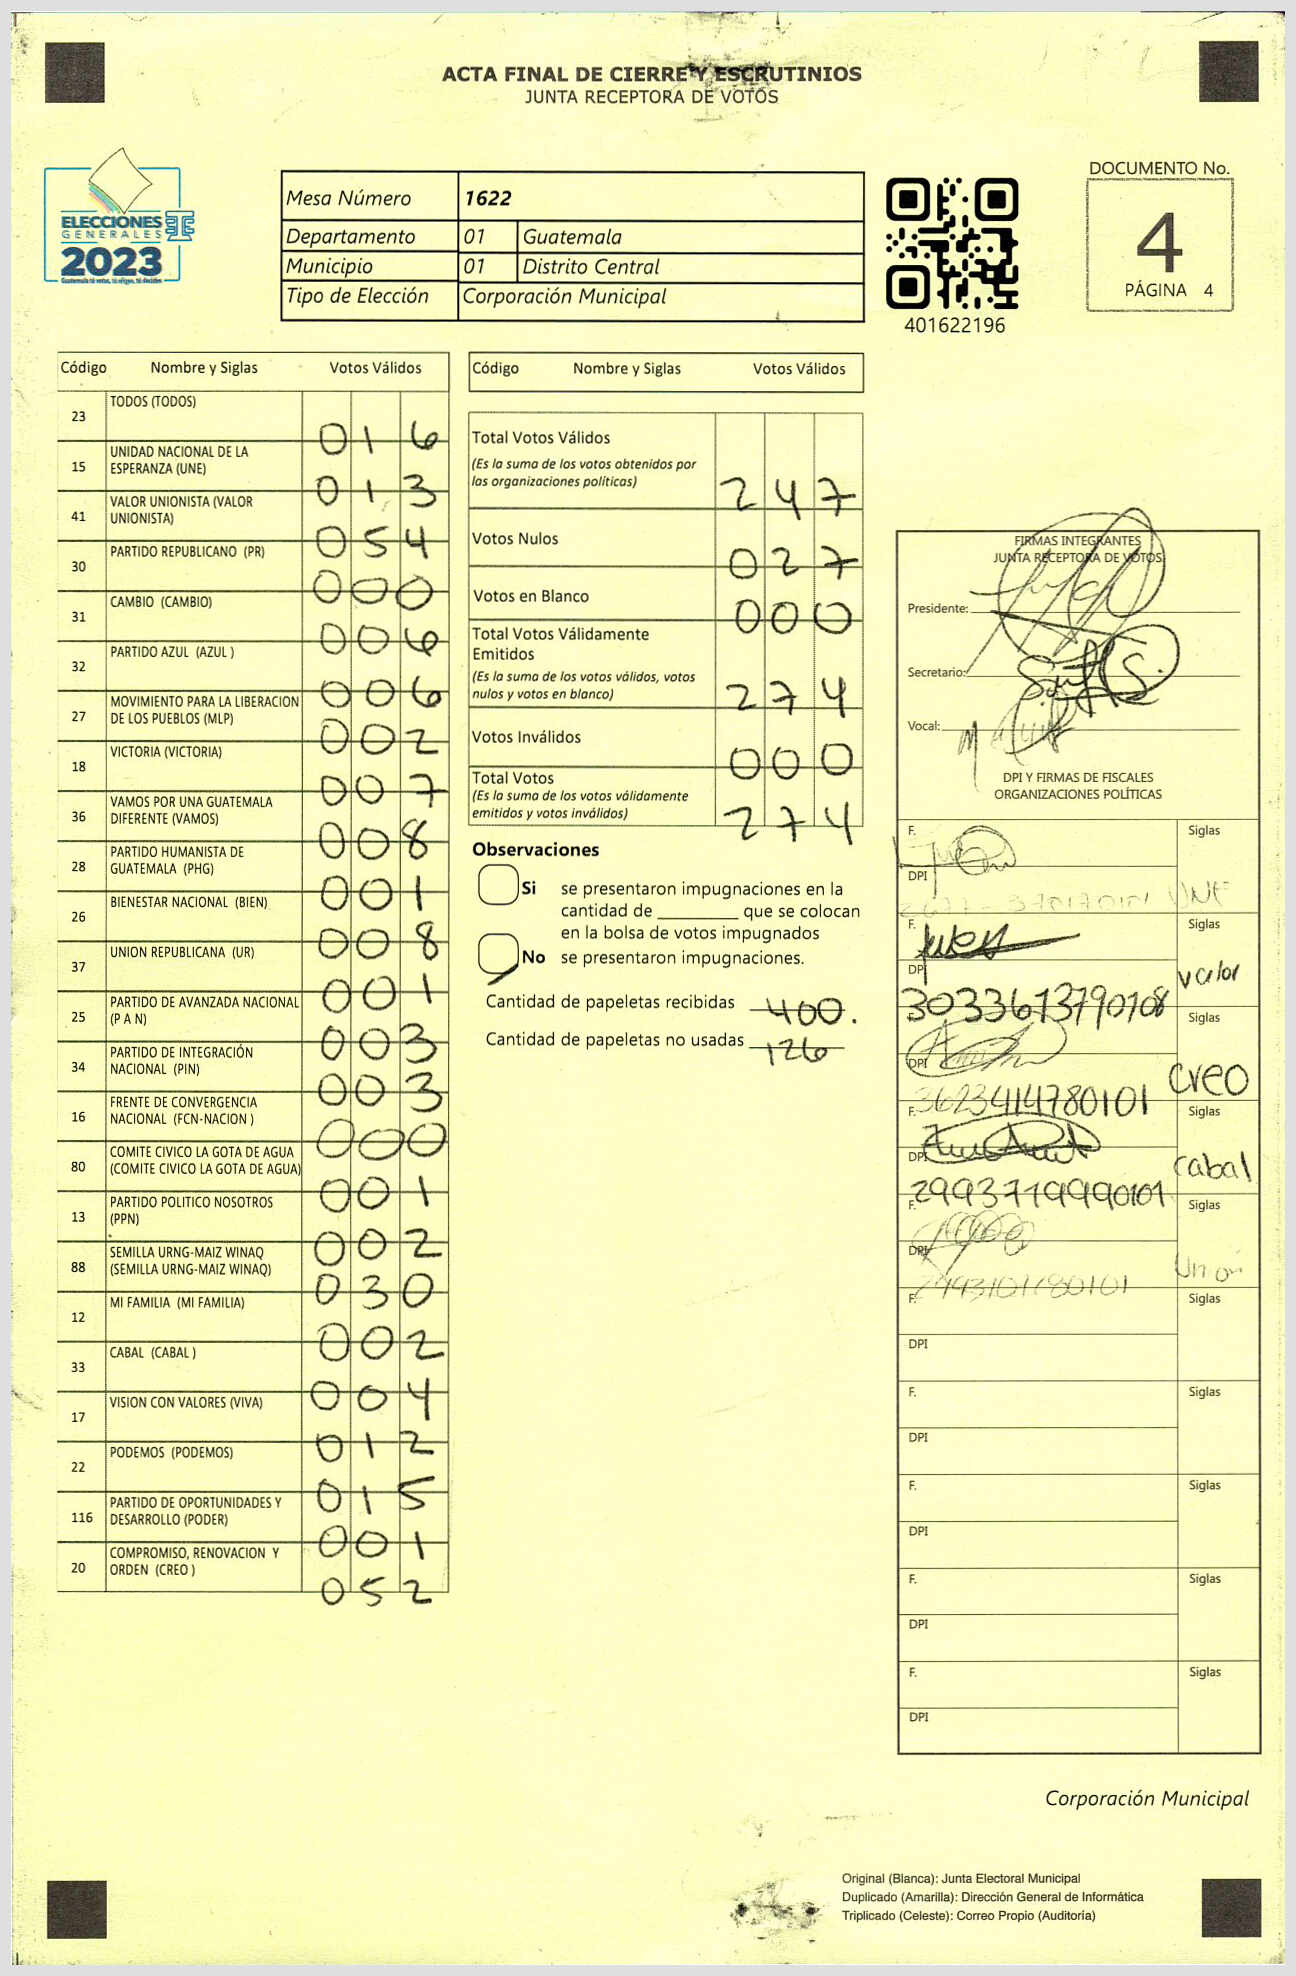 ACTA FINAL DE CIERRE Y ESCRUTINIOS
JUNTA RECEPTORA DE VOTOS
ELECCIONES
GENERALES
2023
Guatemala tú votas, tú eliges, tú decides
Mesa Número 1622
Departamento 01 Guatemala
Municipio 01 Distrito Central
Tipo de Elección Corporación Municipal
401622196
DOCUMENTO No.
4
PÁGINA 4
Código Nombre y Siglas Votos Válidos
23 TODOS (TODOS) 016
15 UNIDAD NACIONAL DE LA
ESPERANZA (UNE) 013
41 VALOR UNIONISTA (VALOR
UNIONISTA) 054
30 PARTIDO REPUBLICANO (PR) 000
31 CAMBIO (CAMBIO) 006
32 PARTIDO AZUL (AZUL ) 006
27 MOVIMIENTO PARA LA LIBERACION
DE LOS PUEBLOS (MLP) 002
18 VICTORIA (VICTORIA) 007
36 VAMOS POR UNA GUATEMALA
DIFERENTE (VAMOS) 008
28 PARTIDO HUMANISTA DE
GUATEMALA (PHG) 001
26 BIENESTAR NACIONAL (BIEN) 008
37 UNION REPUBLICANA (UR) 001
25 PARTIDO DE AVANZADA NACIONAL
(P A N) 003
34 PARTIDO DE INTEGRACIÓN
NACIONAL (PIN) 003
16 FRENTE DE CONVERGENCIA
NACIONAL (FCN-NACION ) 000
80 COMITE CIVICO LA GOTA DE AGUA
(COMITE CIVICO LA GOTA DE AGUA) 001
13 PARTIDO POLITICO NOSOTROS
(PPN) 002
88 SEMILLA URNG-MAIZ WINAQ
(SEMILLA URNG-MAIZ WINAQ) 030
12 MI FAMILIA (MI FAMILIA) 002
33 CABAL (CABAL ) 004
17 VISION CON VALORES (VIVA) 012
22 PODEMOS (PODEMOS) 015
116 PARTIDO DE OPORTUNIDADES Y
DESARROLLO (PODER) 001
20 COMPROMISO, RENOVACION Y
ORDEN (CREO ) 052
Código Nombre y Siglas Votos Válidos
Total Votos Válidos
(Es la suma de los votos obtenidos por
las organizaciones políticas) 247
Votos Nulos 027
Votos en Blanco 000
Total Votos Válidamente
Emitidos
(Es la suma de los votos válidos, votos
nulos y votos en blanco) 274
Votos Inválidos 000
Total Votos
(Es la suma de los votos válidamente
emitidos y votos inválidos) 274
Observaciones
Si se presentaron impugnaciones en la
cantidad de ________ que se colocan
en la bolsa de votos impugnados
No se presentaron impugnaciones.
Cantidad de papeletas recibidas 400.
Cantidad de papeletas no usadas 126
FIRMAS INTEGRANTES
JUNTA RECEPTORA DE VOTOS
Presidente:
Secretario:
Vocal:
DPI Y FIRMAS DE FISCALES
ORGANIZACIONES POLÍTICAS
F. Siglas
DPI
UNE
F. Siglas
DPI
valor
3033613790108
F. Siglas
DPI
creo
3623414780101
F. Siglas
DPI
cabal
2993719990101
F. Siglas
DPI
F. Siglas
DPI
F. Siglas
DPI
F. Siglas
DPI
F. Siglas
DPI
F. Siglas
DPI
Corporación Municipal
Original (Blanca): Junta Electoral Municipal
Duplicado (Amarilla): Dirección General de Informática
Triplicado (Celeste): Correo Propio (Auditoría)